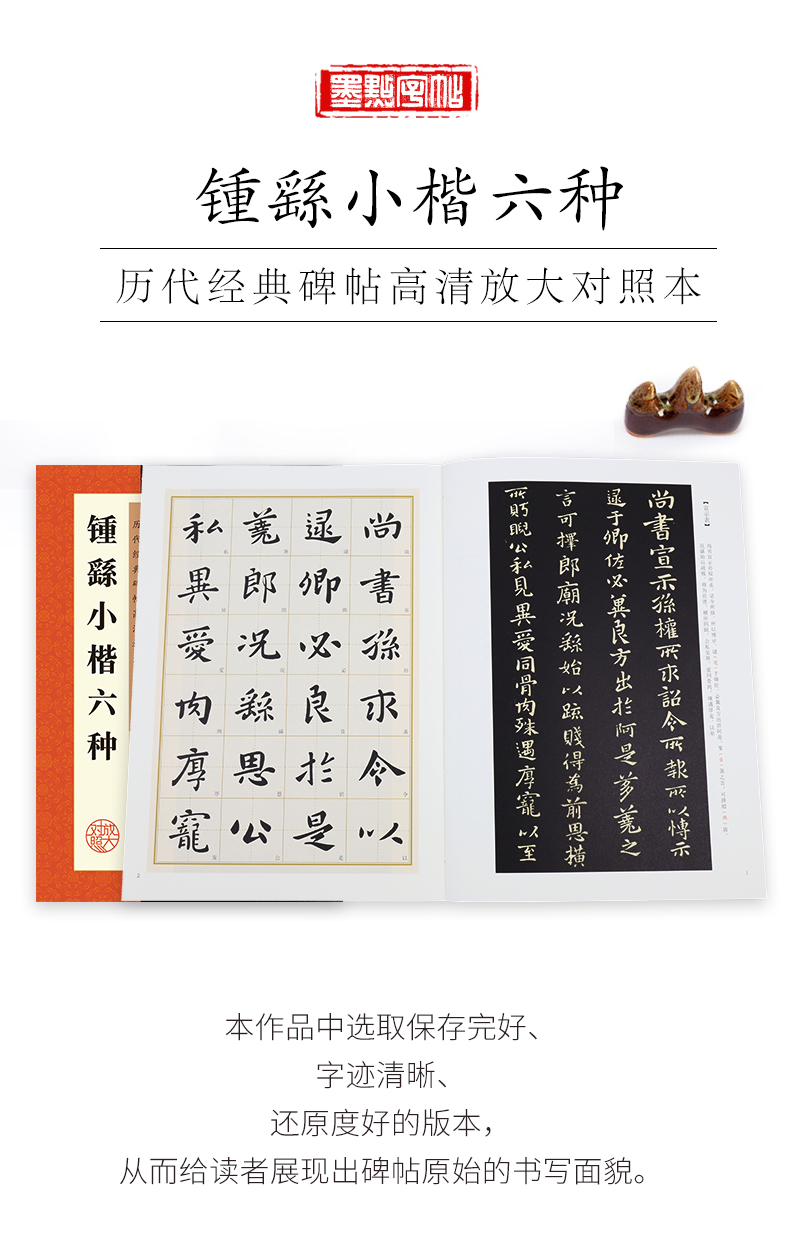 墨點字帖
锺繇小楷六种
历代经典碑帖高清放大对照本
锺繇小楷六种
历代经典碑帖高清
放大对照
尚書孫求令以
逮卿必良於是
蕘郎况繇恩公
私異愛肉厚寵
2
【宣示表】
尚書宣示孫權所求詔令所報所以博示
逮于卿佐必冀良方出於阿是芻蕘之
言可擇郎廟况繇始以疏賤得為前恩横
所眄睨公私見異愛同骨肉殊遇厚寵以至
1
本作品中选取保存完好、
字迹清晰、
还原度好的版本，
从而给读者展现出碑帖原始的书写面貌。